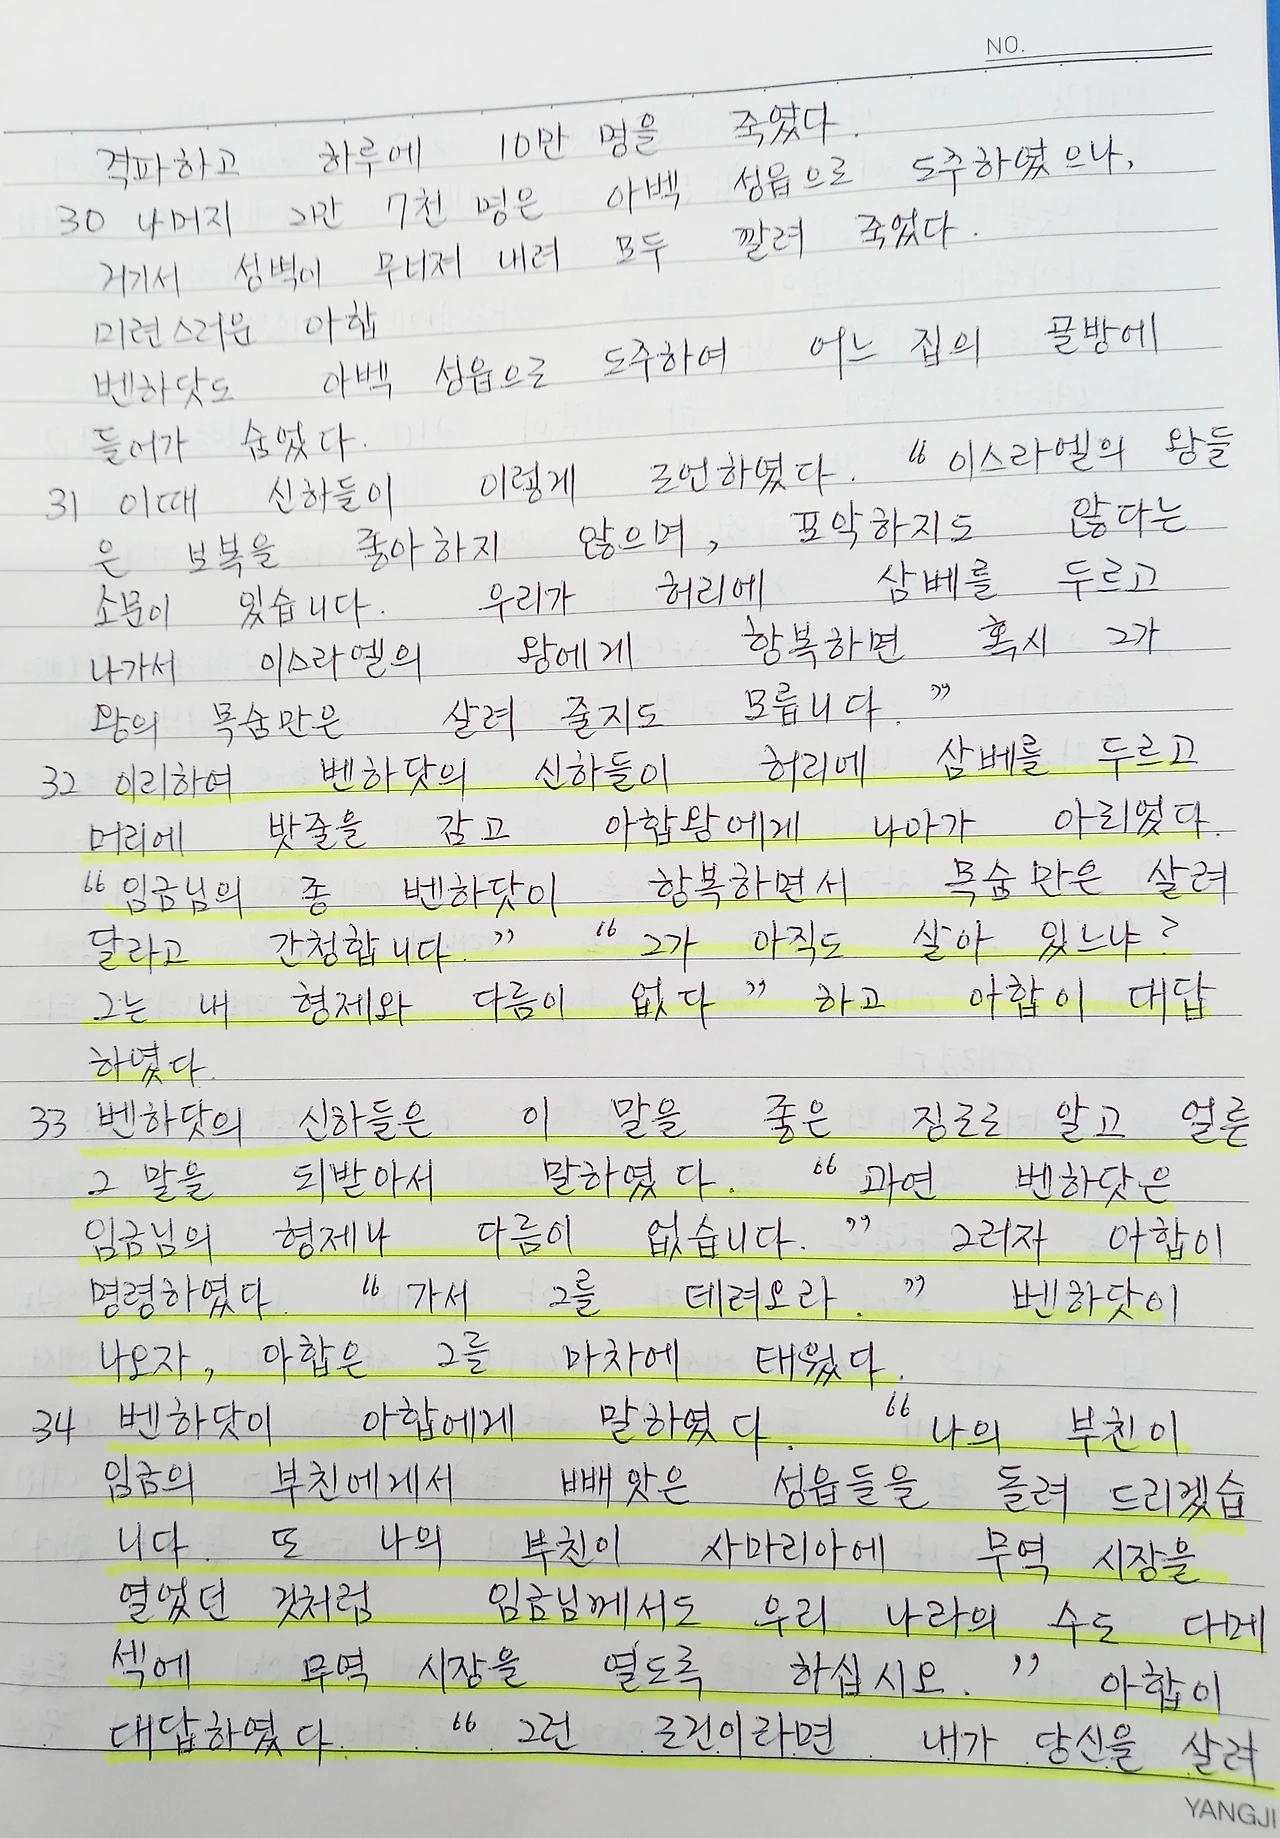 NO.
격파하고 하루에 10만 명을 죽였다.
30 나머지 2만 7천 명은 아벡 성읍으로 도주하였으나,
거기서 성벽이 무너져 내려 모두 깔려 죽었다.
미련스러운 아합
벤하닷도 아벡 성읍으로 도주하여 어느 집의 골방에
들어가 숨었다.
31 이때 신하들이 이렇게 조언하였다. “이스라엘의 왕들
은 보복을 좋아하지 않으며, 포악하지도 않다는
소문이 있습니다. 우리가 허리에 삼베를 두르고
나가서 이스라엘의 왕에게 항복하면 혹시 그가
왕의 목숨만은 살려 줄지도 모릅니다.”
32 이리하여 벤하닷의 신하들이 허리에 삼베를 두르고
머리에 밧줄을 감고 아합왕에게 나아가 아뢰었다.
“임금님의 종 벤하닷이 항복하면서 목숨만은 살려
달라고 간청합니다.” “그가 아직도 살아 있느냐?
그는 내 형제와 다름이 없다” 하고 아합이 대답
하였다.
33 벤하닷의 신하들은 이 말을 좋은 징조로 알고 얼른
그 말을 되받아서 말하였다. “과연 벤하닷은
임금님의 형제나 다름이 없습니다.” 그러자 아합이
명령하였다. “가서 그를 데려오라.” 벤하닷이
나오자, 아합은 그를 마차에 태웠다.
34 벤하닷이 아합에게 말하였다. “나의 부친이
임금의 부친에게서 빼앗은 성읍들을 돌려 드리겠습
니다. 또 나의 부친이 사마리아에 무역 시장을
열었던 것처럼 임금님께서도 우리 나라의 수도 다메
섹에 무역 시장을 열도록 하십시오.” 아합이
대답하였다. “그런 조건이라면 내가 당신을 살려
YANGJI